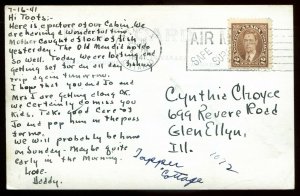 7-16-41
Hi Toots:-
Here is a picture of our Cabin. We
are having a wonderful time
Mother caught 2 sacks of fish
yesterday. The Old Man did not do
so well. Today we are loafing and
getting set for an all day fishing
trip again tomorrow.
I hope that you and Jo and
Mrs I are getting along OK.
We certainly do miss you
Kids. Take good care of
Jo and pop him in the puss
for me.
We will probably be home
on Sunday. Maybe quite
early in the Morning.
Love.
Daddy.
AIR M
Cynthia Choyce
699 Revere Road
Glen Ellyn,
Ill.
Tapper
Cottage
10/2